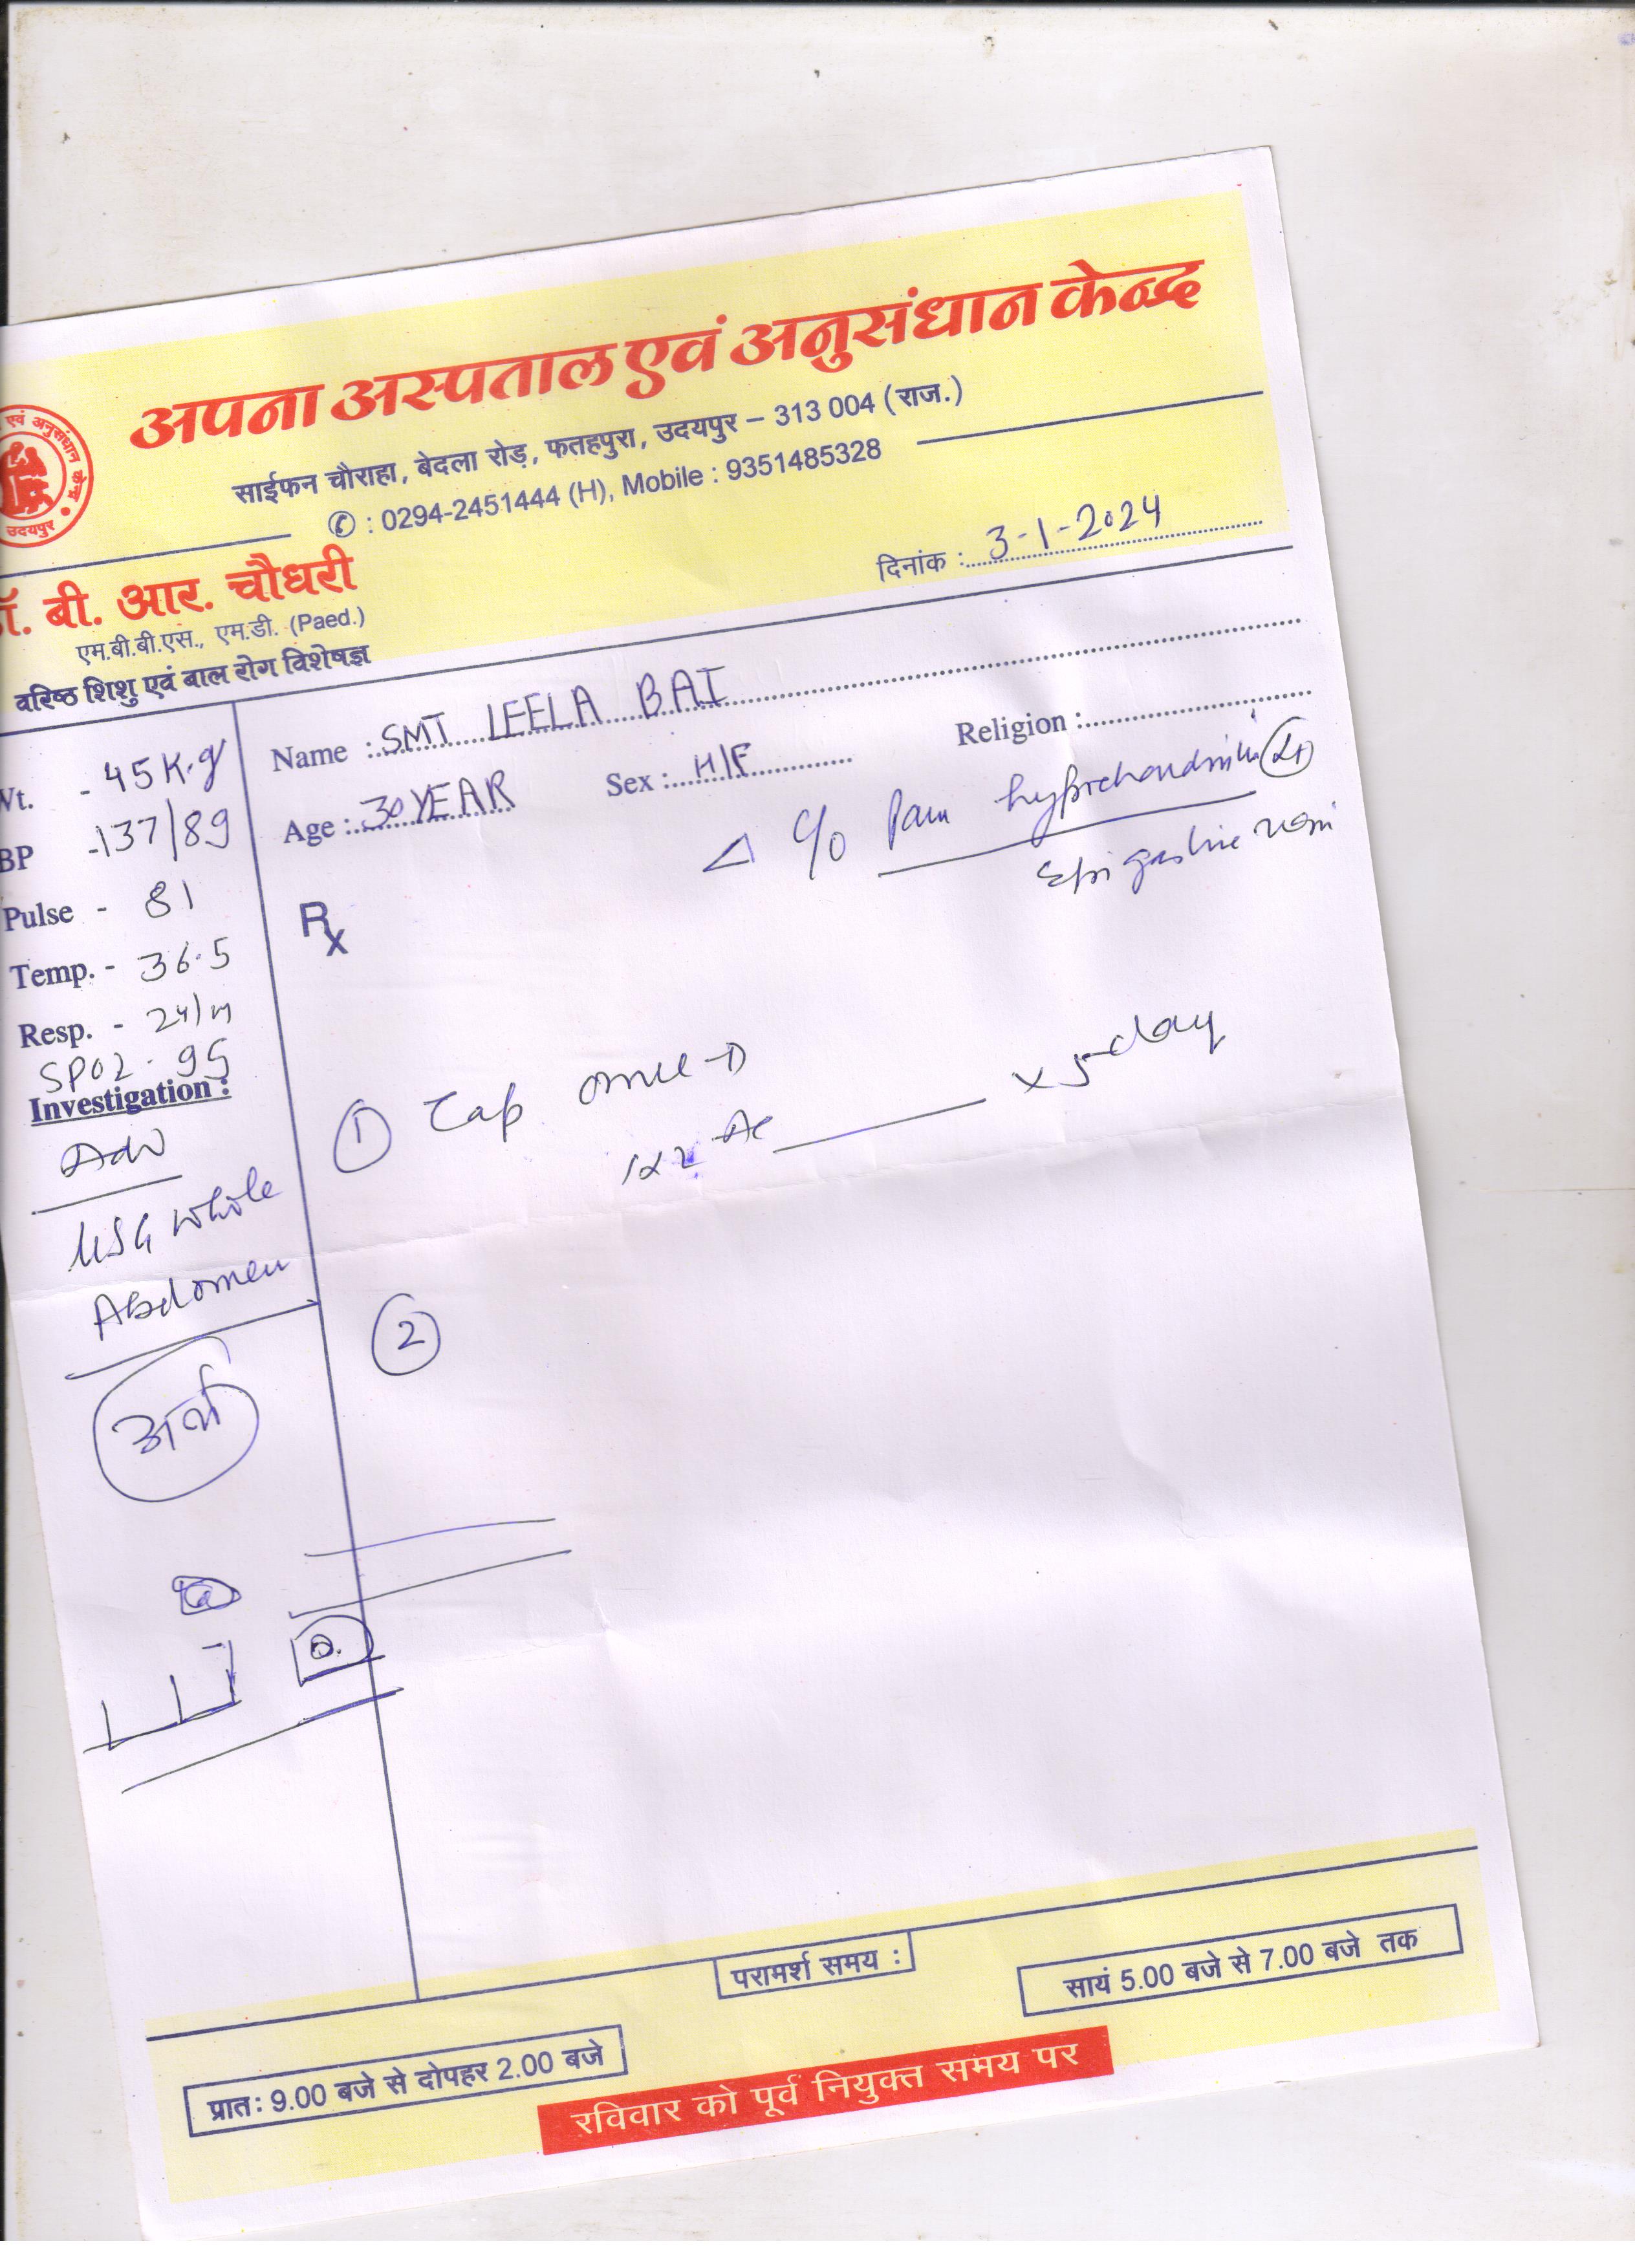 अपना अस्पताल एवं अनुसंधान केन्द्र
साईफन चौराहा, बेदला रोड़, फतहपुरा, उदयपुर – 313 004 (राज.)
✆ : 0294-2451444 (H), Mobile : 9351485328
एवं अनुसंधान केन्द्र
उदयपुर
दिनांक : 3-1-2024
डॉ. बी. आर. चौधरी
एम.बी.बी.एस., एम.डी. (Paed.)
वरिष्ठ शिशु एवं बाल रोग विशेषज्ञ
Name : SMT LEELA BAI
Religion :
Age : 30 YEAR
Sex : H/F
Wt. - 45 K.g
BP - 137/89
Pulse - 81
Temp. - 36.5
Resp. - 24/m
SPO2 - 95
Investigation :
Adv
USG whole
Abdomen
C/o Pain
Epigastric
Rx
① Cap
x 5 day
②
परामर्श समय :
प्रातः 9.00 बजे से दोपहर 2.00 बजे
सायं 5.00 बजे से 7.00 बजे तक
रविवार को पूर्व नियुक्त समय पर